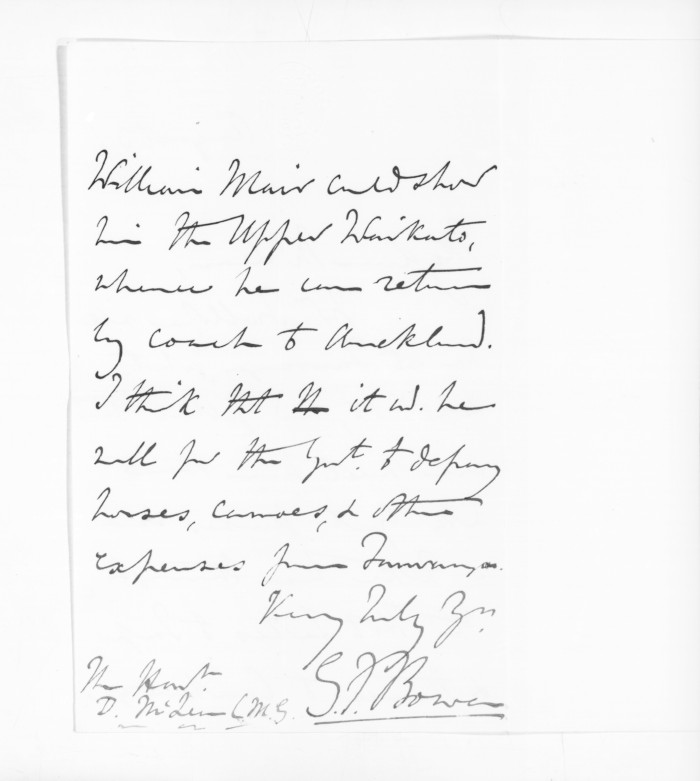 William Mair could show
him the Upper Waikato,
whence he can return
by coach to Auckland.
I think tht it wd. be
well for the Govt. to defray
horses, canoes, & other
expenses from Tauranga.
Very truly Yrs.
G. F. Bowen
The Honble.
D. McLean C.M.G.